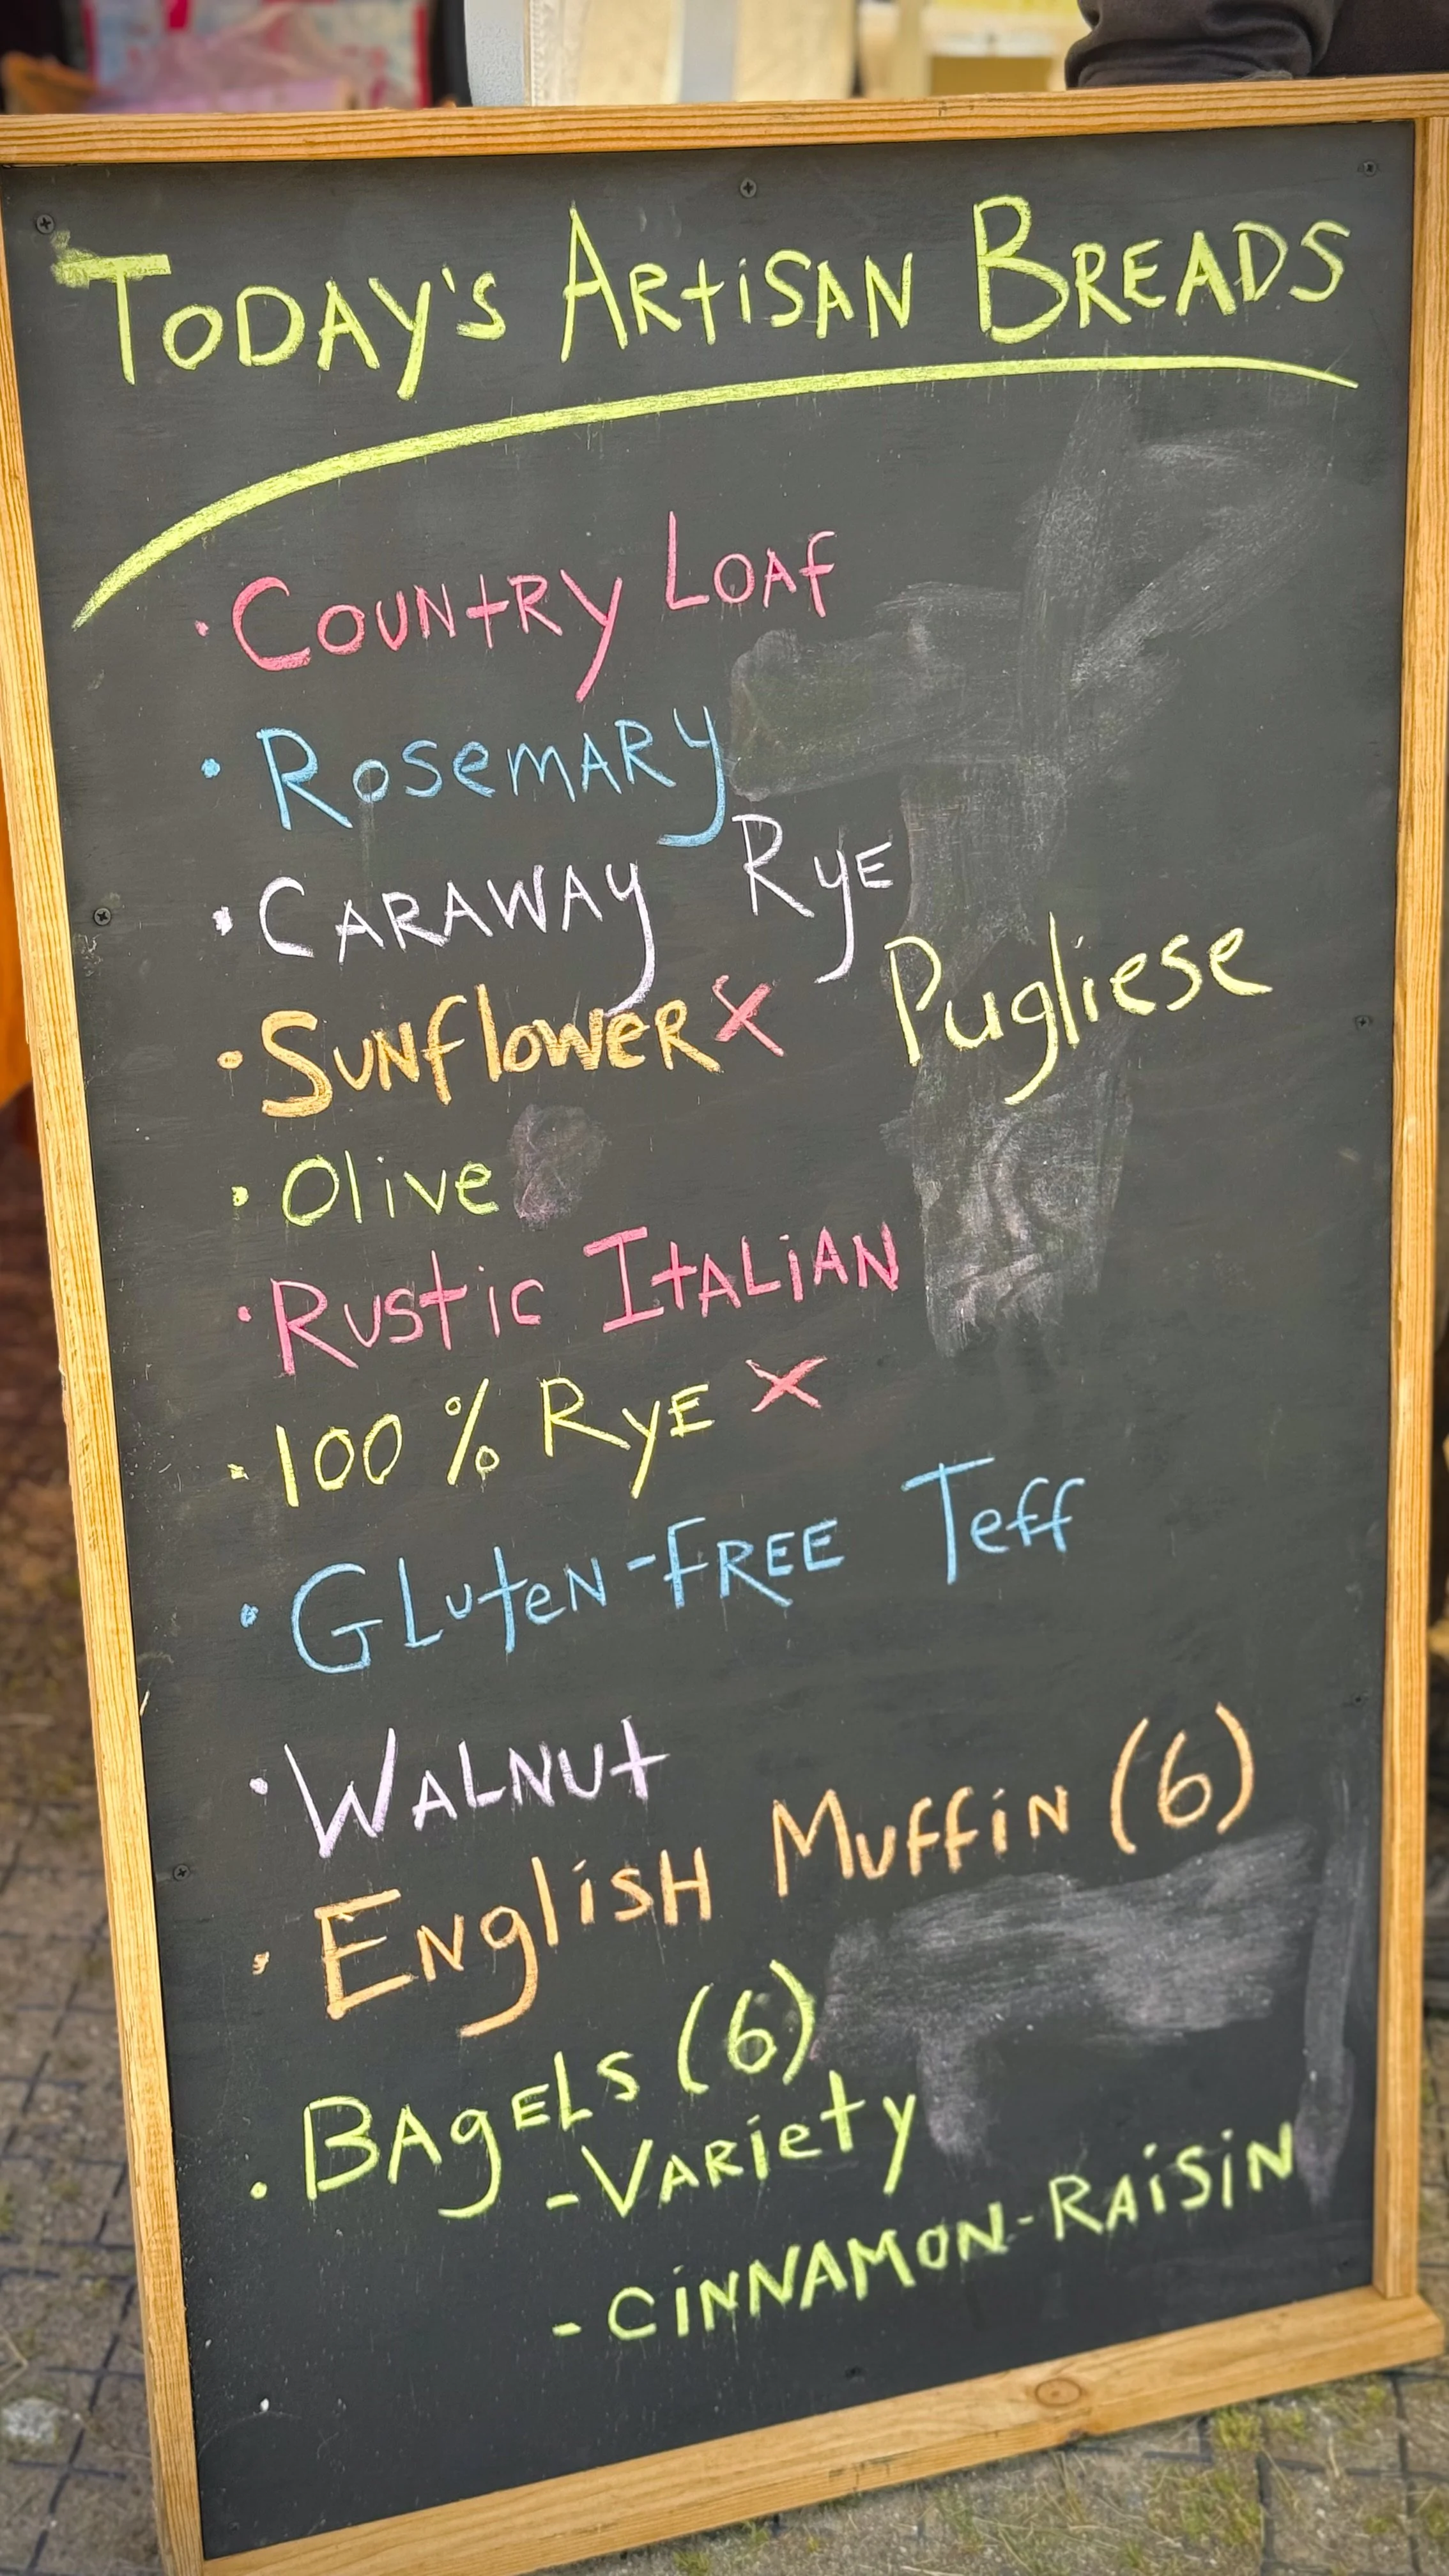 Today's Artisan Breads
· Country Loaf
· Rosemary
· Caraway Rye
· Sunflower X Pugliese
· Olive
· Rustic Italian
· 100% Rye X
· Gluten-Free Teff
· Walnut
· English Muffin (6)
· Bagels (6)
- Variety
- Cinnamon-Raisin